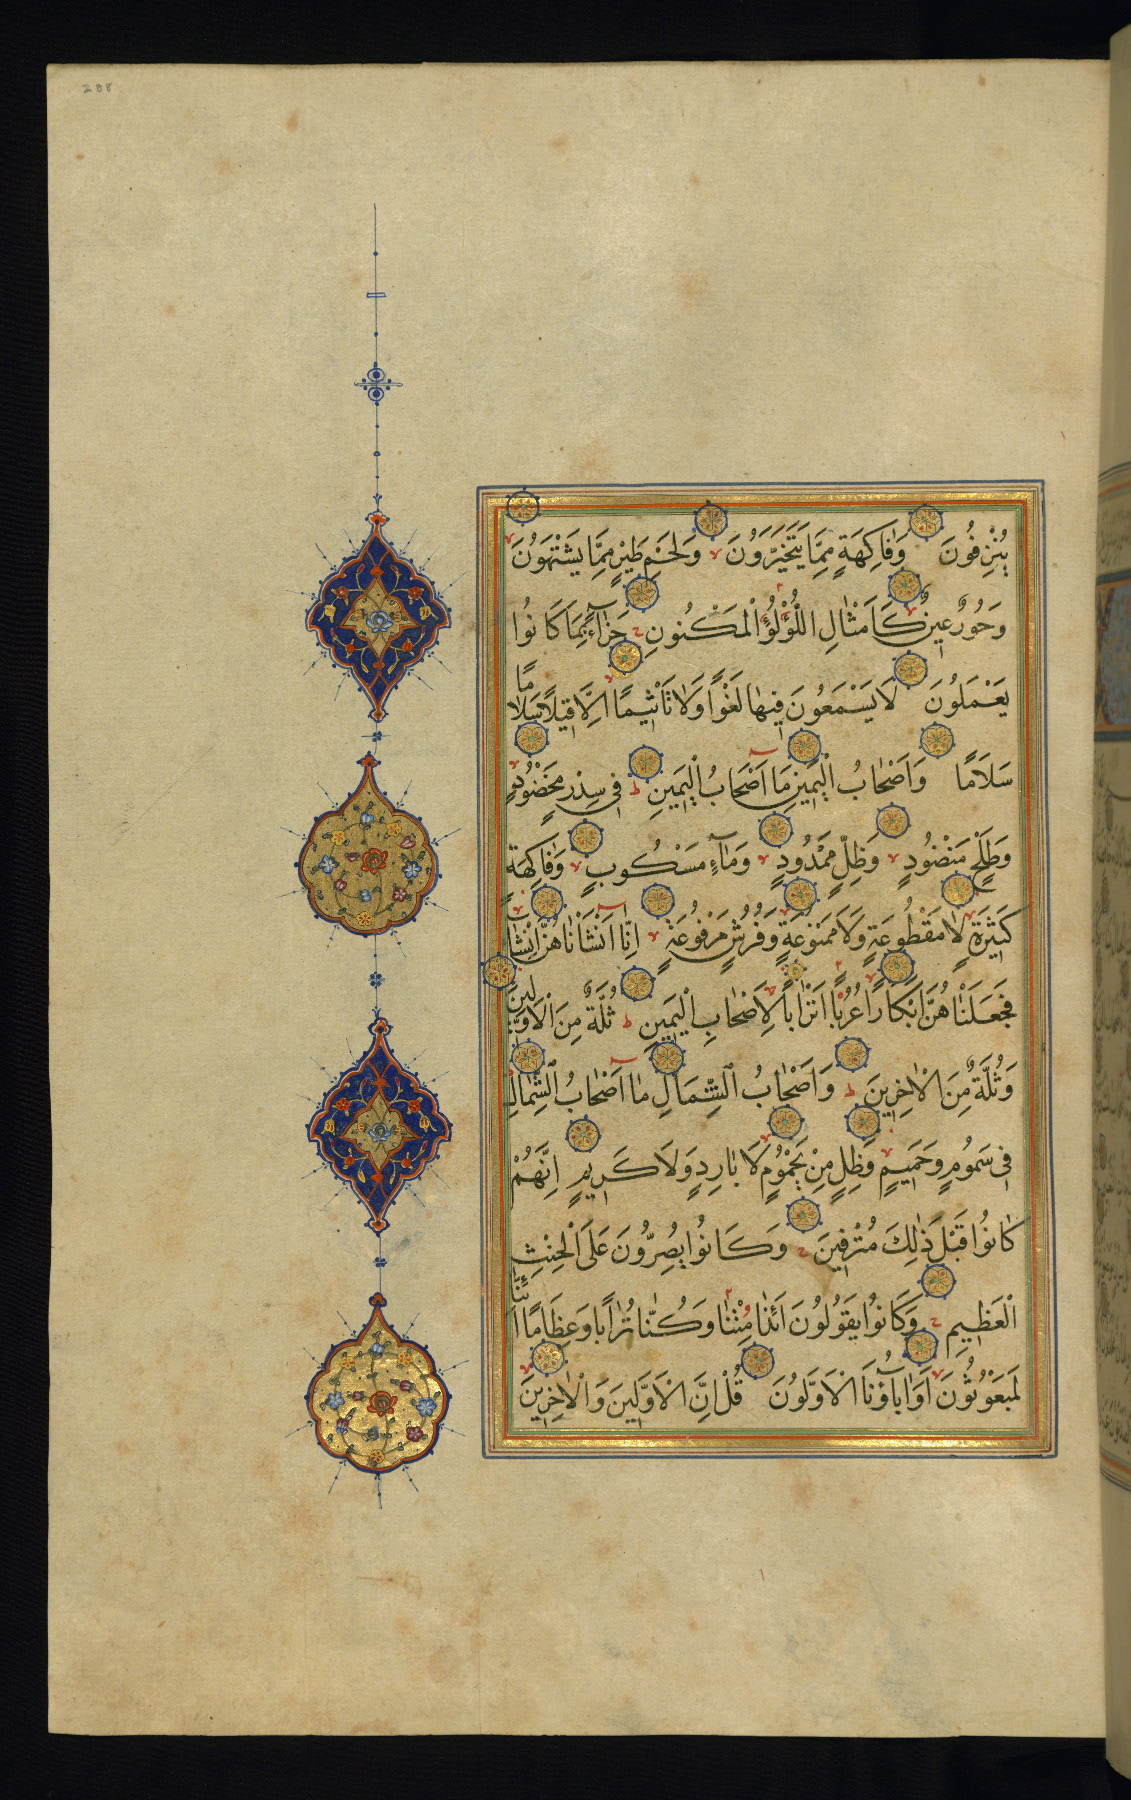 288
يُنْزِفُونَ وَفَاكِهَةٍ مِمَّا يَتَخَيَّرُونَ وَلَحْمِ طَيْرٍ مِمَّا يَشْتَهُونَ
وَحُورٌ عِينٌ كَاَمْثَالِ اللُّؤْلُؤِ الْمَكْنُونِ جَزَآءً بِمَا كَانُوا
يَعْمَلُونَ لَا يَسْمَعُونَ فِيهَا لَغْوًا وَلَا تَأْثِيمًا اِلَّا قِيلًا سَلَامًا
سَلَامًا وَاَصْحَابُ الْيَمِينِ مَا اَصْحَابُ الْيَمِينِ فِي سِدْرٍ مَخْضُودٍ
وَطَلْحٍ مَنْضُودٍ وَظِلٍّ مَمْدُودٍ وَمَآءٍ مَسْكُوبٍ وَفَاكِهَةٍ
كَثِيرَةٍ لَا مَقْطُوعَةٍ وَلَا مَمْنُوعَةٍ وَفُرُشٍ مَرْفُوعَةٍ اِنَّا اَنْشَاْنَاهُنَّ اِنْشَآءً
فَجَعَلْنَاهُنَّ اَبْكَارًا عُرُبًا اَتْرَابًا لِاَصْحَابِ الْيَمِينِ ثُلَّةٌ مِنَ الْاَوَّلِينَ
وَثُلَّةٌ مِنَ الْاٰخِرِينَ وَاَصْحَابُ الشِّمَالِ مَا اَصْحَابُ الشِّمَالِ
فِي سَمُومٍ وَحَمِيمٍ وَظِلٍّ مِنْ يَحْمُومٍ لَا بَارِدٍ وَلَا كَرِيمٍ اِنَّهُمْ
كَانُوا قَبْلَ ذٰلِكَ مُتْرَفِينَ وَكَانُوا يُصِرُّونَ عَلَى الْحِنْثِ
الْعَظِيمِ وَكَانُوا يَقُولُونَ اَئِذَا مِتْنَا وَكُنَّا تُرَابًا وَعِظَامًا اَئِنَّا
لَمَبْعُوثُونَ اَوَاٰبَآؤُنَا الْاَوَّلُونَ قُلْ اِنَّ الْاَوَّلِينَ وَالْاٰخِرِينَ